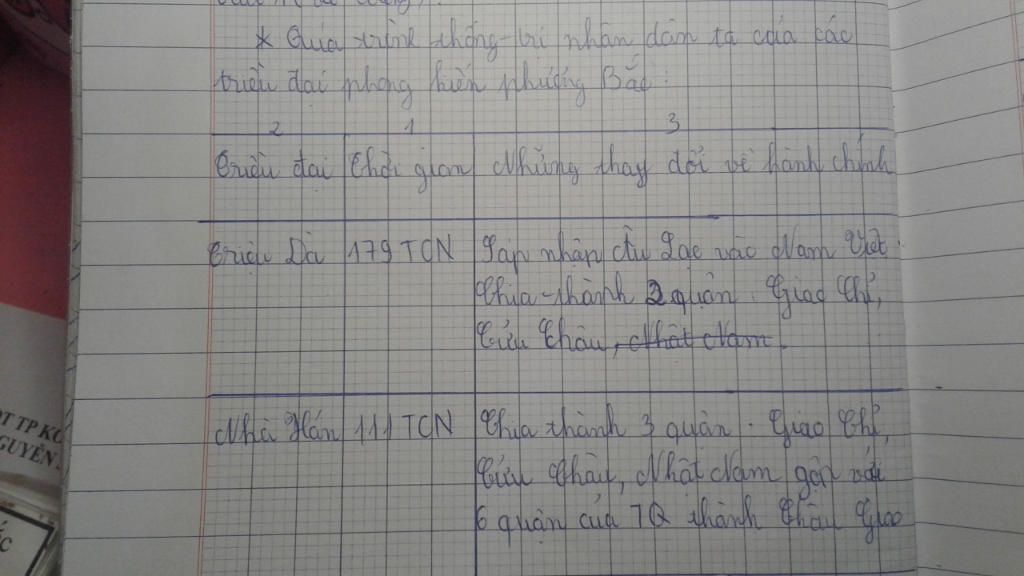 * Quá trình thống trị nhân dân ta của các
triều đại phong kiến phương Bắc:
2 1 3
Triều đại Thời gian Những thay đổi về hành chính
Triệu Đà 179 TCN Sáp nhập Âu Lạc vào Nam Việt
Chia thành 2 quận: Giao Chỉ,
Cửu Chân, Nhật Nam.
Nhà Hán 111 TCN Chia thành 3 quận: Giao Chỉ,
Cửu Chân, Nhật Nam gộp với
6 quận của TQ thành Châu Giao
OT TP KO
NGUYEN